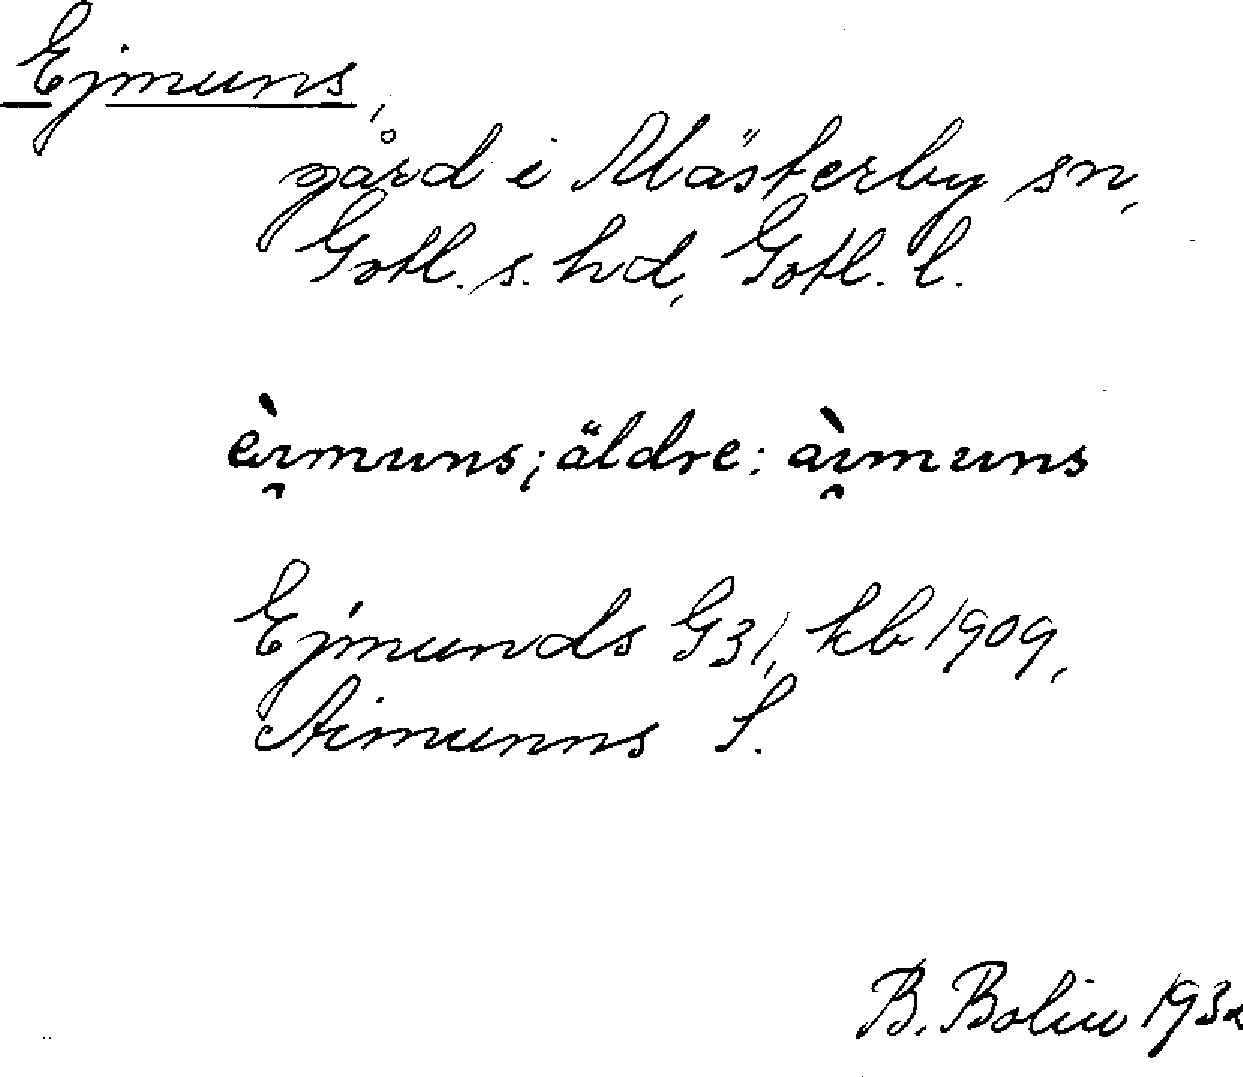 Ejmuns,
gård i Mästerby sn,
Gotl. s. hd, Gotl. l.
èı̯muns; äldre: àı̯muns
Ejmunds G31, kb 1909,
Aimunns S.
B. Bolin 1932